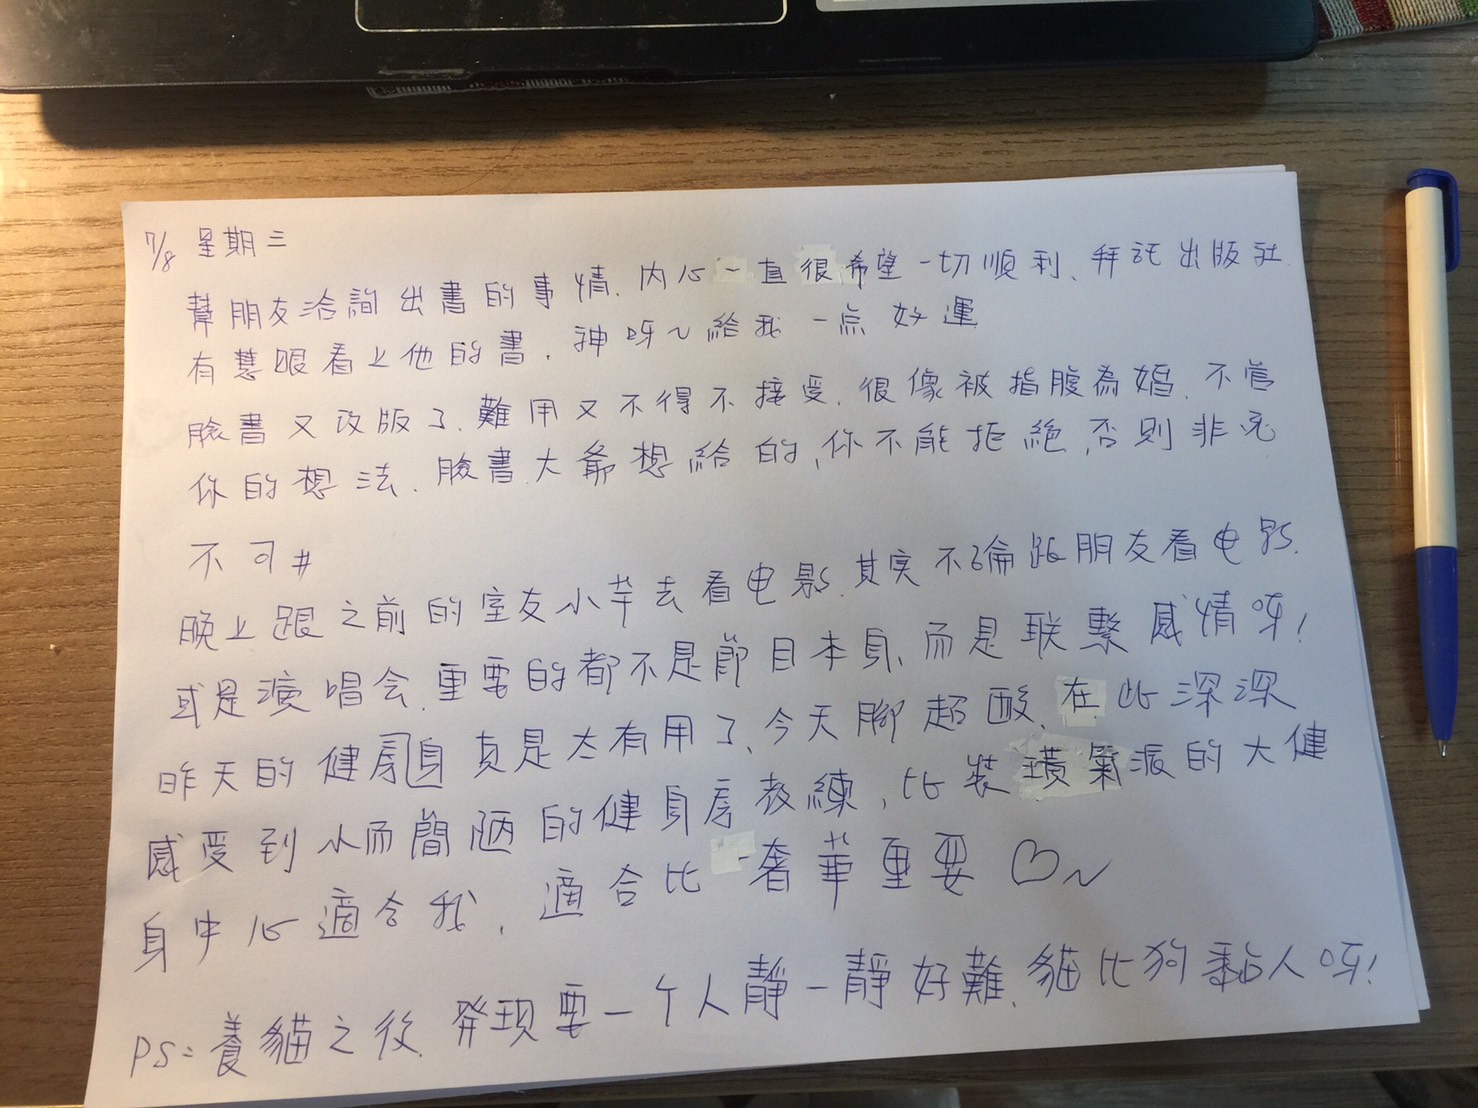 7/8 星期三
幫朋友洽詢出書的事情、內心一直很希望一切順利、拜託出版社
有慧眼看上他的書、神呀～給我一点好運
臉書又改版了、難用又不得不接受、很像被指腹為婚、不管
你的想法、臉書大爺想給的、你不能拒絕、否則非死
不可#
晚上跟之前的室友小芊去看电影、其实不論跟朋友看电影、
或是演唱会、重要的都不是節目本身、而是联繫感情呀!
昨天的健身真是太有用了、今天腳超酸、在此深深
感受到小而簡陋的健身房教練、比裝璜氣派的大健
身中心適合我、適合比奢華重要♡～
PS=養貓之後、発現要一个人靜一靜好難、貓比狗黏人呀!